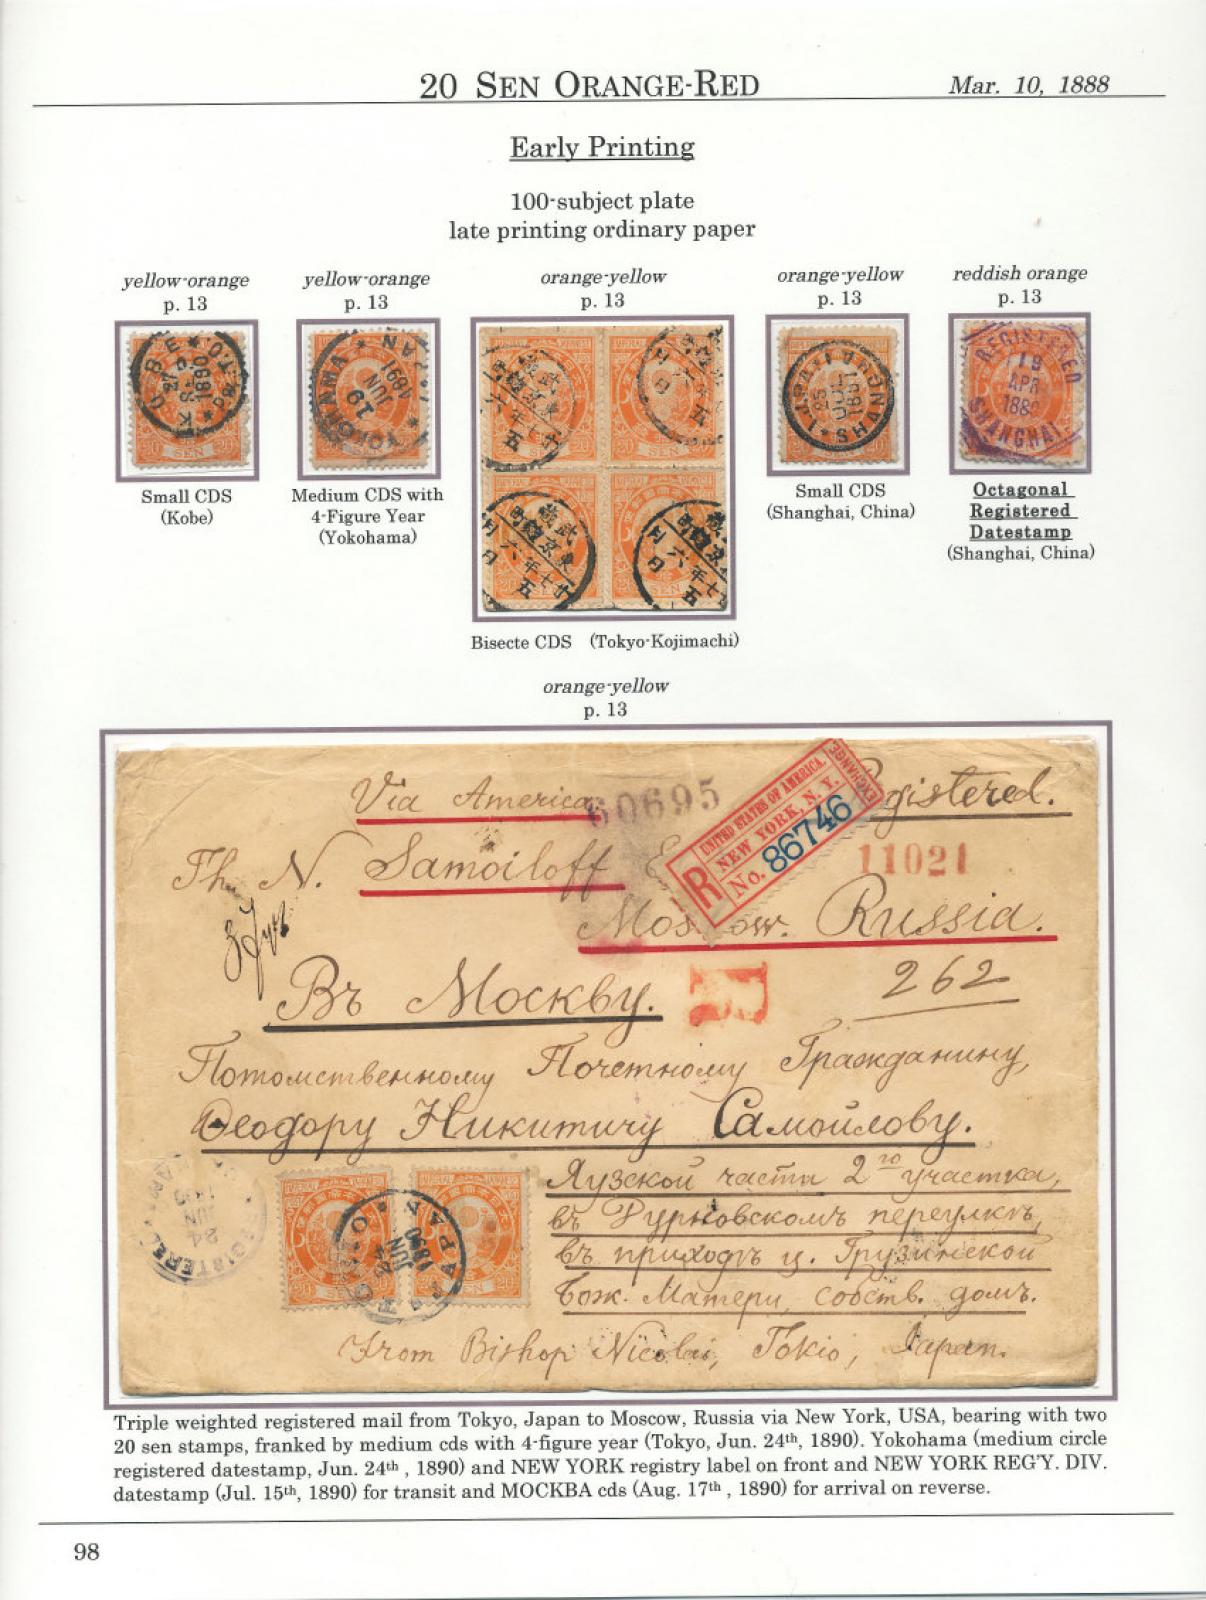 20 SEN ORANGE-RED
Mar. 10, 1888
Early Printing
100-subject plate
late printing ordinary paper
yellow-orange
p. 13
yellow-orange
p. 13
orange-yellow
p. 13
orange-yellow
p. 13
reddish orange
p. 13
KOBE
1890
20 SEN 20
YOKOHAMA JAPAN
19
JUN
1891
SEN
20 SEN
SEN 20
20 SEN
SEN 20
SHANGHAI
25
JUL
1891
20 SEN
REGISTERED
18
APR
SHANGHAI
20 SEN
Small CDS
(Kobe)
Medium CDS with
4-Figure Year
(Yokohama)
Small CDS
(Shanghai, China)
Octagonal
Registered
Datestamp
(Shanghai, China)
Bisecte CDS (Tokyo-Kojimachi)
orange-yellow
p. 13
Via America
60695
UNITED STATES OF AMERICA.
EXCHANGE
NEW YORK, N. Y.
R No. 86746
gistered.
11021
Th. N. Samoiloff
Moscow. Russia.
262
Въ Москву.
Потомственному Почетному Гражданину,
Ѳеодору Никитичу Самойлову.
Яузской части 2го участка,
въ Дурновскомъ переулкѣ,
въ приходѣ ц. Грузинской
Бож. Матери, собств. домъ.
REGISTERED
24
JUN
20 SEN
SEN 20
TOKIO JAPAN
24
JUN
1890
From Bishop Nicolai, Tokio, Japan.
Triple weighted registered mail from Tokyo, Japan to Moscow, Russia via New York, USA, bearing with two
20 sen stamps, franked by medium cds with 4-figure year (Tokyo, Jun. 24th, 1890). Yokohama (medium circle
registered datestamp, Jun. 24th , 1890) and NEW YORK registry label on front and NEW YORK REG'Y. DIV.
datestamp (Jul. 15th, 1890) for transit and MOCKBA cds (Aug. 17th , 1890) for arrival on reverse.
98